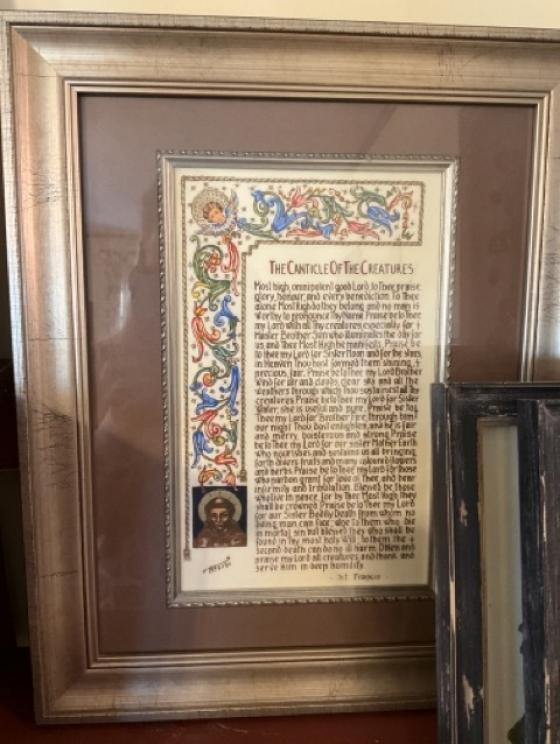 THE CANTICLE OF THE CREATURES
Most high, omnipotent good Lord, to Thee praise
glory, honour, and every benediction. To Thee
alone Most High do they belong and no man is
worthy to pronounce Thy Name. Praise be to Thee
my Lord with all Thy creatures, especially for
Master Brother Sun who illuminates the day for
us and Thee Most High he manifests. Praise be
to Thee my Lord for Sister Moon and for the stars,
in Heaven Thou hast formed them shining, +
precious, fair. Praise be to Thee my Lord Brother
Wind for air and clouds, clear sky and all the
weathers through which Thou sustainest all thy
creatures. Praise be to Thee my Lord for Sister
Water, she is useful and pure. Praise be to
Thee my Lord for Brother Fire, through him
our night Thou dost enlighten, and he is fair
and merry, boisterous and strong. Praise
be to Thee my Lord for our sister Mother Earth
who nourishes and sustains us all bringing
forth divers fruits and many coloured flowers
and herbs. Praise be to Thee my Lord for those
who pardon grant for love of Thee and bear
infirmity and tribulation. Blessed be those
who live in peace, for by Thee Most High they
shall be crowned. Praise be to Thee my Lord
for our Sister Bodily Death from whom no
living man can flee, woe to them who die
in mortal sin but blessed they who shall be
found in Thy most holy Will, to them the +
second death can do no ill harm. O then and
praise my Lord all creatures, and thank and
serve him in deep humility.
St Francis